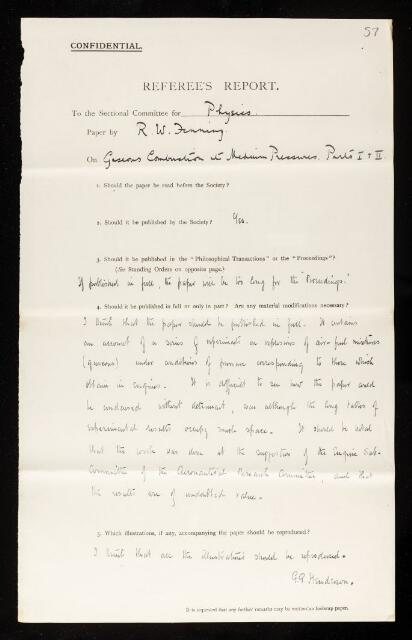 57
CONFIDENTIAL.
REFEREE'S REPORT.
To the Sectional Committee for Physics.
Paper by R. W. Fenning.
On Gaseous Combustion at Medium Pressures. Parts I & II
1. Should the paper be read before the Society?
2. Should it be published by the Society? Yes.
3. Should it be published in the "Philosophical Transactions" or the "Proceedings"?
(See Standing Orders on opposite page.)
If published in full, the paper will be too long for the "Proceedings."
4. Should it be published in full or only in part? Are any material modifications necessary?
I think that the paper should be published in full. It contains
an account of a series of experiments on explosions of air-fuel mixtures
(gaseous) under conditions of pressure corresponding to those which
obtain in engines. It is difficult to see how the paper could
be condensed without detriment, even although the long tables of
experimental results occupy much space. It should be noted
that the work was done at the suggestion of the Engine Sub-
Committee of the Aeronautical Research Committee, and that
the results are of undoubted value.
5. Which illustrations, if any, accompanying the paper should be reproduced?
I think that all the illustrations should be reproduced.
Henderson.
It is requested that any further remarks may be written on foolscap paper.